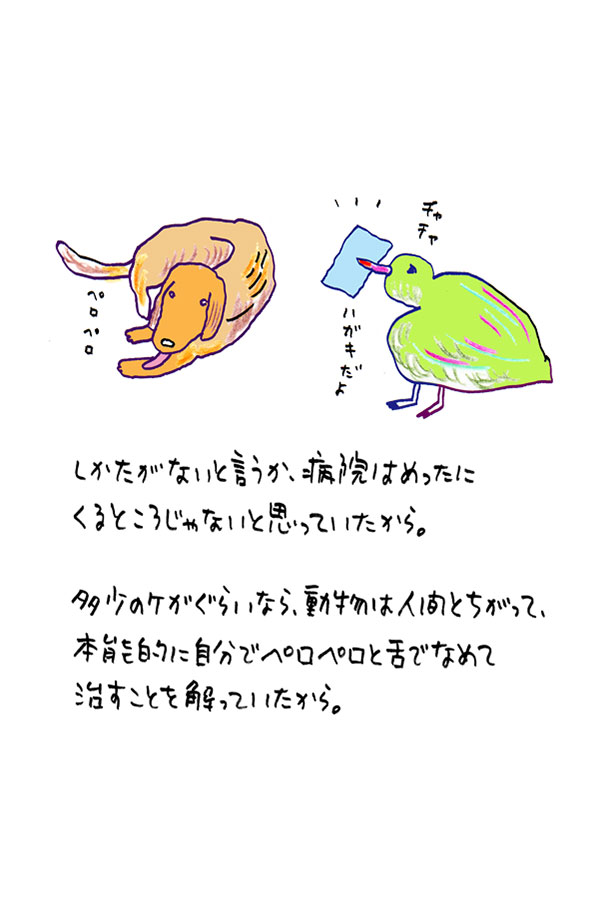 ペロペロ
チャチャ
ハガキだよ
しかたがないと言うか、病院はめったに
くるところじゃないと思っていたから。
多少のケガぐらいなら、動物は人間とちがって、
本能的に自分でペロペロと舌でなめて
治すことを解っていたから。